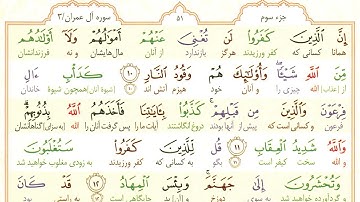 جزء سوم ۵۱ سوره آل عمران/۳
إِنَّ الَّذِينَ كَفَرُوا لَنْ تُغْنِيَ عَنْهُمْ أَمْوَالُهُمْ وَلَا أَوْلَادُهُمْ
همانا کسانی که کفر ورزیدند هرگز بازندارد از آنان مال‌هایشان و نه فرزندانشان
مِنَ اللَّهِ شَيْئًا وَأُولَٰئِكَ هُمْ وَقُودُ النَّارِ ۱۰ كَدَأْبِ ءَالِ
از (عذاب) الله چیزی را و آنان هیزم آتش اند (شیوه آنان) همچون شیوهٔ خاندان
فِرْعَوْنَ وَالَّذِينَ مِنْ قَبْلِهِمْ كَذَّبُوا بِآيَاتِنَا فَأَخَذَهُمُ اللَّهُ بِذُنُوبِهِمْ
فرعون و کسانی است که پیش از آنها بودند دروغ انگاشتند آیات ما را پس گرفت آنان را الله به (سزای) گناهانشان
وَاللَّهُ شَدِيدُ الْعِقَابِ ۱۱ قُلْ لِلَّذِينَ كَفَرُوا سَتُغْلَبُونَ
و الله سخت کیفر است بگو به کسانی که کفر ورزیدند به زودی مغلوب خواهید شد
وَتُحْشَرُونَ إِلَىٰ جَهَنَّمَ وَبِئْسَ الْمِهَادُ ۱۲ قَدْ كَانَ
و گردآورده خواهید شد به سوی دوزخ و (آن) بد جایگاهی است